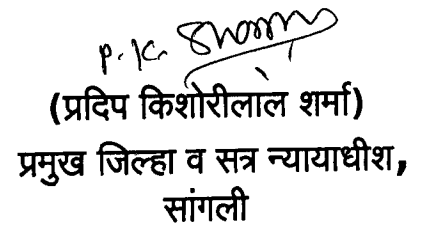 P. K. Sharma
(प्रदिप किशोरीलाल शर्मा)
प्रमुख जिल्हा व सत्र न्यायाधीश,
सांगली